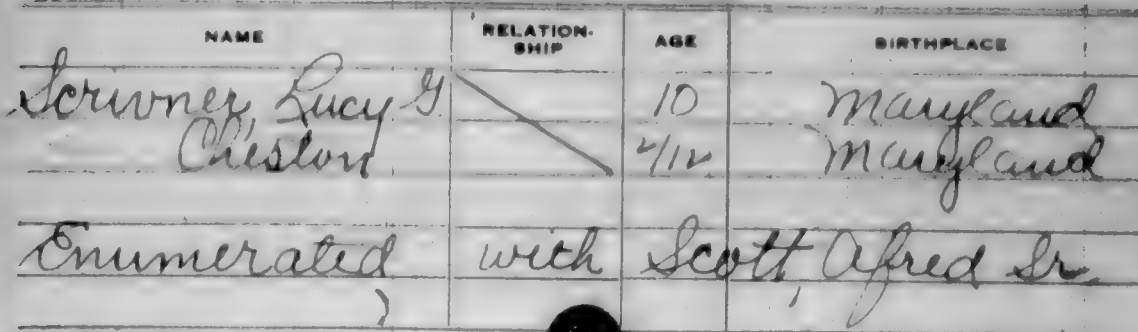 NAME RELATION-SHIP AGE BIRTHPLACE
Scrivner, Lucy G 10 Maryland
Creston 2/12 Maryland
Enumerated with Scott, Alfred Sr